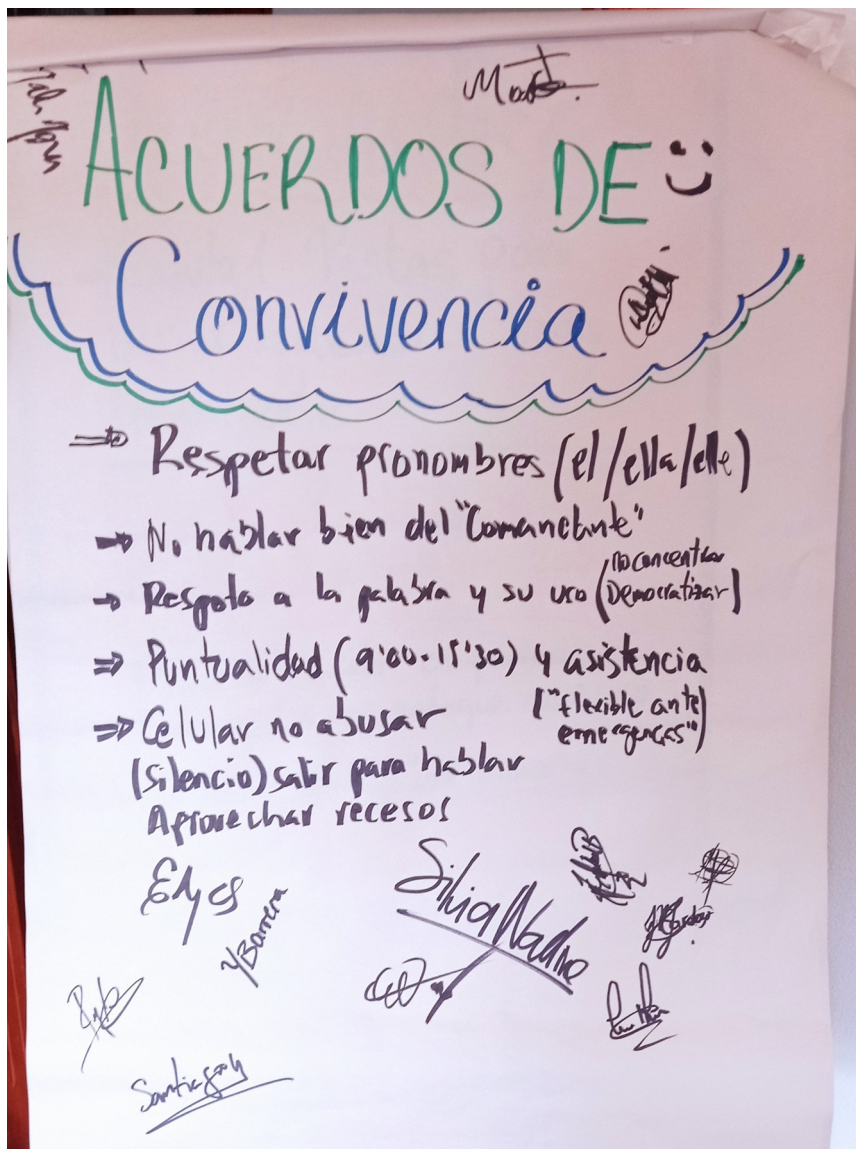 ACUERDOS DE
Convivencia
Respetar pronombres (el/ella/elle)
No hablar bien del "Comandante"
Respeto a la palabra y su uso (no concentrar
Democratizar)
Puntualidad (9:00-15:30) y asistencia
("flexible ante
emergencias")
Celular no abusar
(Silencio) salir para hablar
Aprovechar recesos
YBarrera